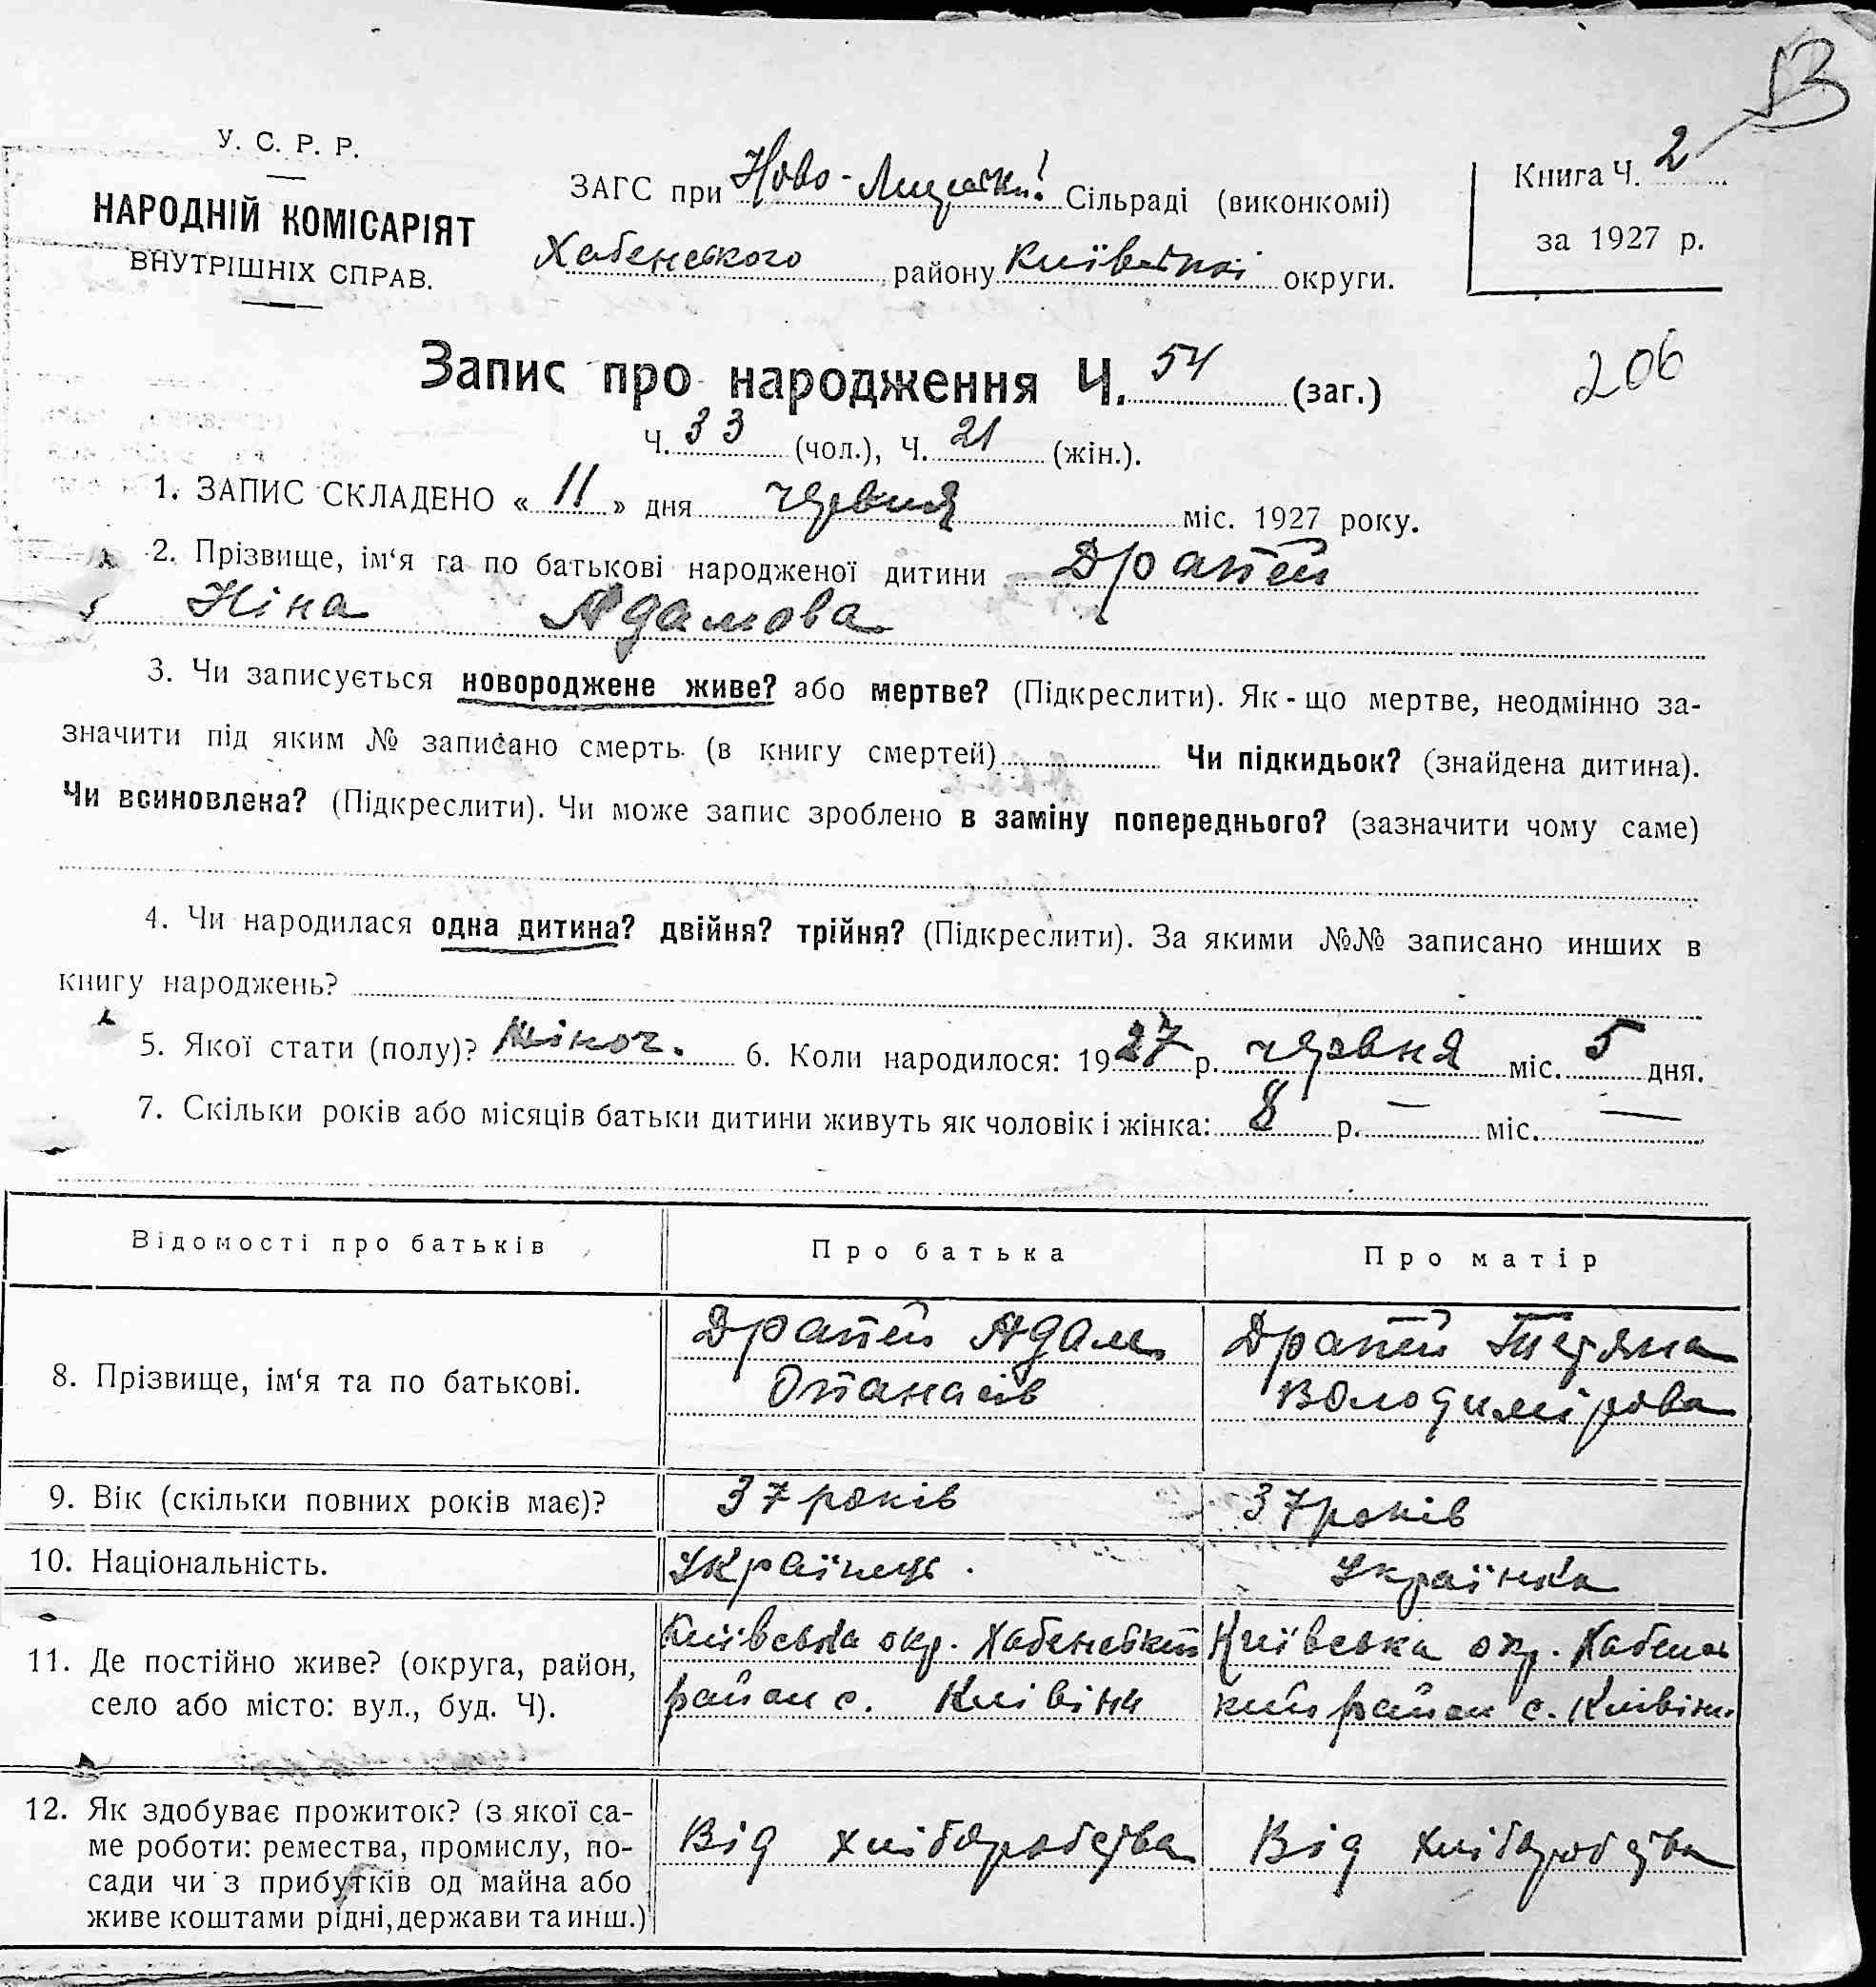 13
У. С. Р. Р.
НАРОДНІЙ КОМІСАРІЯТ
ВНУТРІШНІХ СПРАВ.
ЗАГС при Ново- Сільраді (виконкомі)
Хабенського району Київської округи.
Книга Ч. 2
за 1927 р.
Запис про народження Ч. 54 (заг.)
206
Ч. 33 (чол.), Ч. 21 (жін.).
1. ЗАПИС СКЛАДЕНО « 11 » дня червня міс. 1927 року.
2. Прізвище, ім‘я та по батькові народженої дитини Драпей
Ніна Адамова
3. Чи записується новороджене живе? або мертве? (Підкреслити). Як - що мертве, неодмінно за-
значити під яким № записано смерть (в книгу смертей) Чи підкидьок? (знайдена дитина).
Чи всиновлена? (Підкреслити). Чи може запис зроблено в заміну попереднього? (зазначити чому саме)
4. Чи народилася одна дитина? двійня? трійня? (Підкреслити). За якими №№ записано инших в
книгу народжень?
5. Якої стати (полу)? жіноч. 6. Коли народилося: 1927 р. червня міс. 5 дня.
7. Скільки років або місяців батьки дитини живуть як чоловік і жінка: 8 р. — міс. —
Відомості про батьків Про батька Про матір
8. Прізвище, ім‘я та по батькові. Драпей Адам Драпей Тетяна
Опанасів Володимірова
9. Вік (скільки повних років має)? 37 років 37 років
10. Національність. Українець. Українка
11. Де постійно живе? (округа, район, Київська окр. Хабенський Київська окр. Хабенсь
село або місто: вул., буд. Ч). район с. Кливіни кий район с. Кливіни
12. Як здобуває прожиток? (з якої са-
ме роботи: ремества, промислу, по- Від хліборобства Від хліборобства
сади чи з прибутків од майна або
живе коштами рідні, держави та инш.)